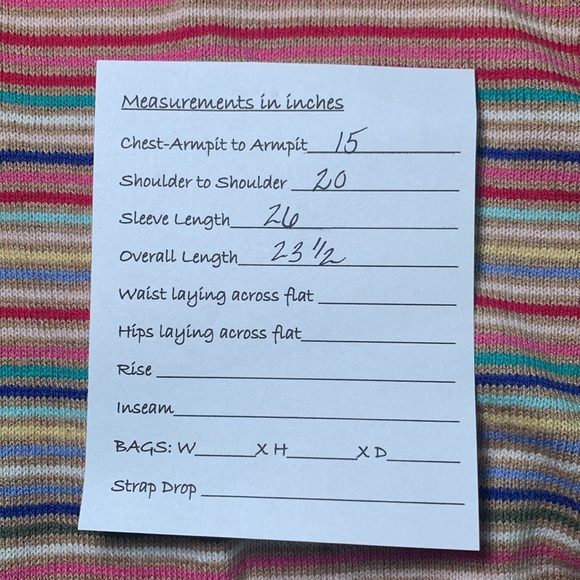 Measurements in inches
Chest-Armpit to Armpit 15
Shoulder to Shoulder 20
Sleeve Length 26
Overall Length 23 1/2
Waist laying across flat
Hips laying across flat
Rise
Inseam
BAGS: W______X H______X D______
Strap Drop